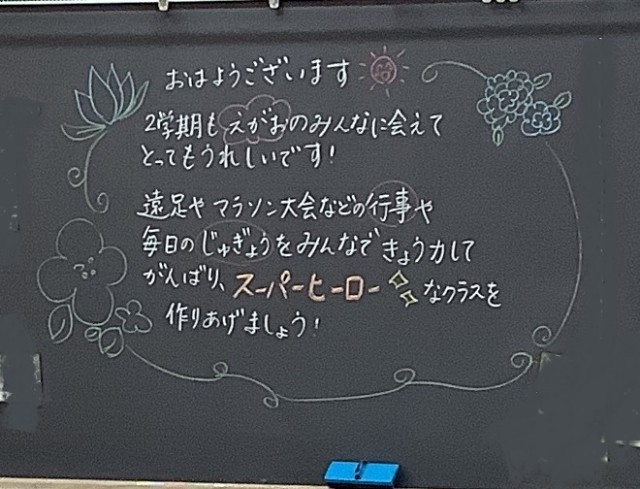 おはようございます
2学期も えがおのみんなに会えて
とってもうれしいです!
遠足や マラソン大会などの行事や
毎日の じゅぎょうを みんなで きょう力して
がんばり、スーパーヒーロー なクラスを
作りあげましょう!